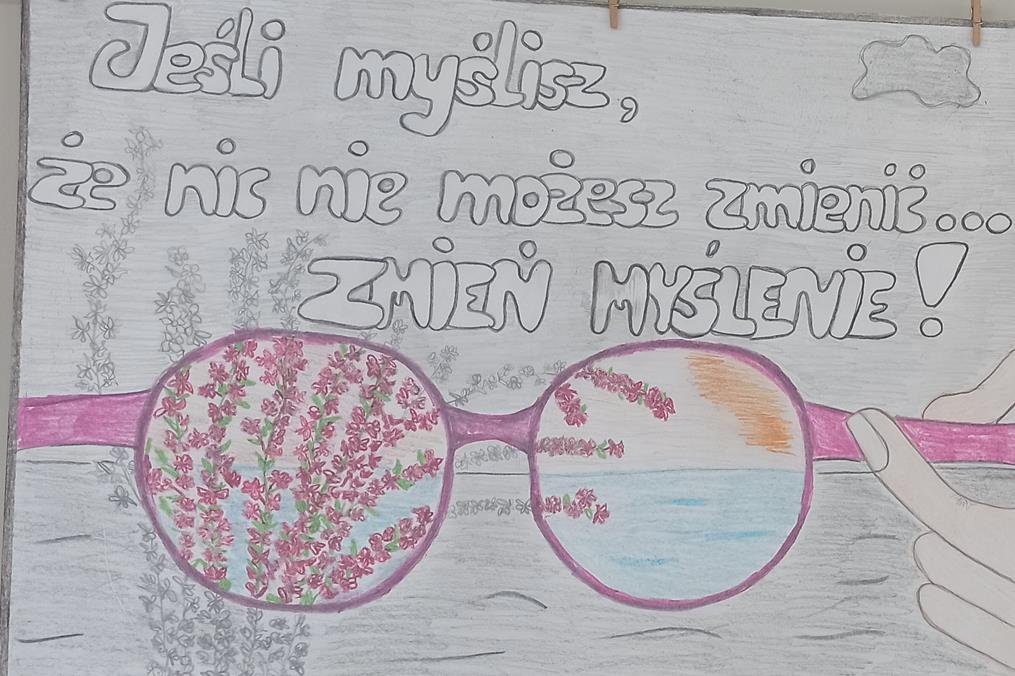 Jeśli myślisz,
że nic nie możesz zmienić...
ZMIEŃ MYŚLENIE!